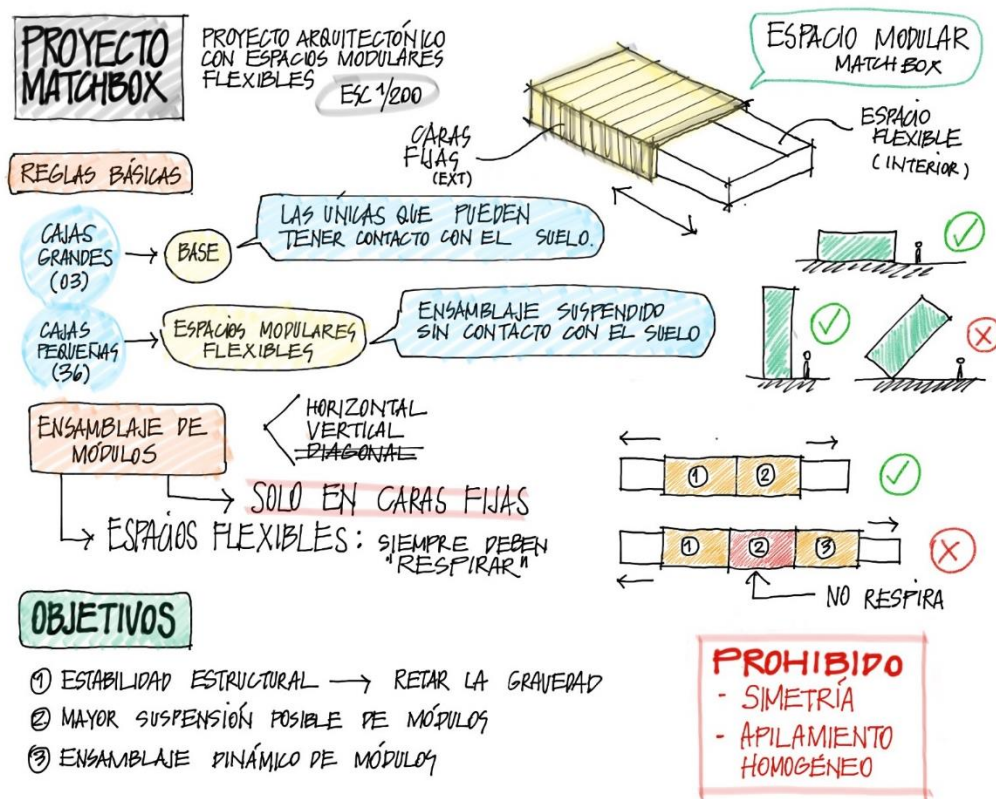 PROYECTO
MATCHBOX
PROYECTO ARQUITECTÓNICO
CON ESPACIOS MODULARES
FLEXIBLES
ESC 1/200
ESPACIO MODULAR
MATCHBOX
CARAS
FIJAS
(EXT)
ESPACIO
FLEXIBLE
(INTERIOR)
REGLAS BÁSICAS
CAJAS
GRANDES
(03)
BASE
LAS ÚNICAS QUE PUEDEN
TENER CONTACTO CON EL SUELO.
CAJAS
PEQUEÑAS
(36)
ESPACIOS MODULARES
FLEXIBLES
ENSAMBLAJE SUSPENDIDO
SIN CONTACTO CON EL SUELO
ENSAMBLAJE DE
MÓDULOS
HORIZONTAL
VERTICAL
DIAGONAL
SOLO EN CARAS FIJAS
ESPACIOS FLEXIBLES: SIEMPRE DEBEN
"RESPIRAR"
1 2
1 2 3
NO RESPIRA
OBJETIVOS
1 ESTABILIDAD ESTRUCTURAL → RETAR LA GRAVEDAD
2 MAYOR SUSPENSIÓN POSIBLE DE MÓDULOS
3 ENSAMBLAJE DINÁMICO DE MÓDULOS
PROHIBIDO
- SIMETRÍA
- APILAMIENTO
HOMOGÉNEO